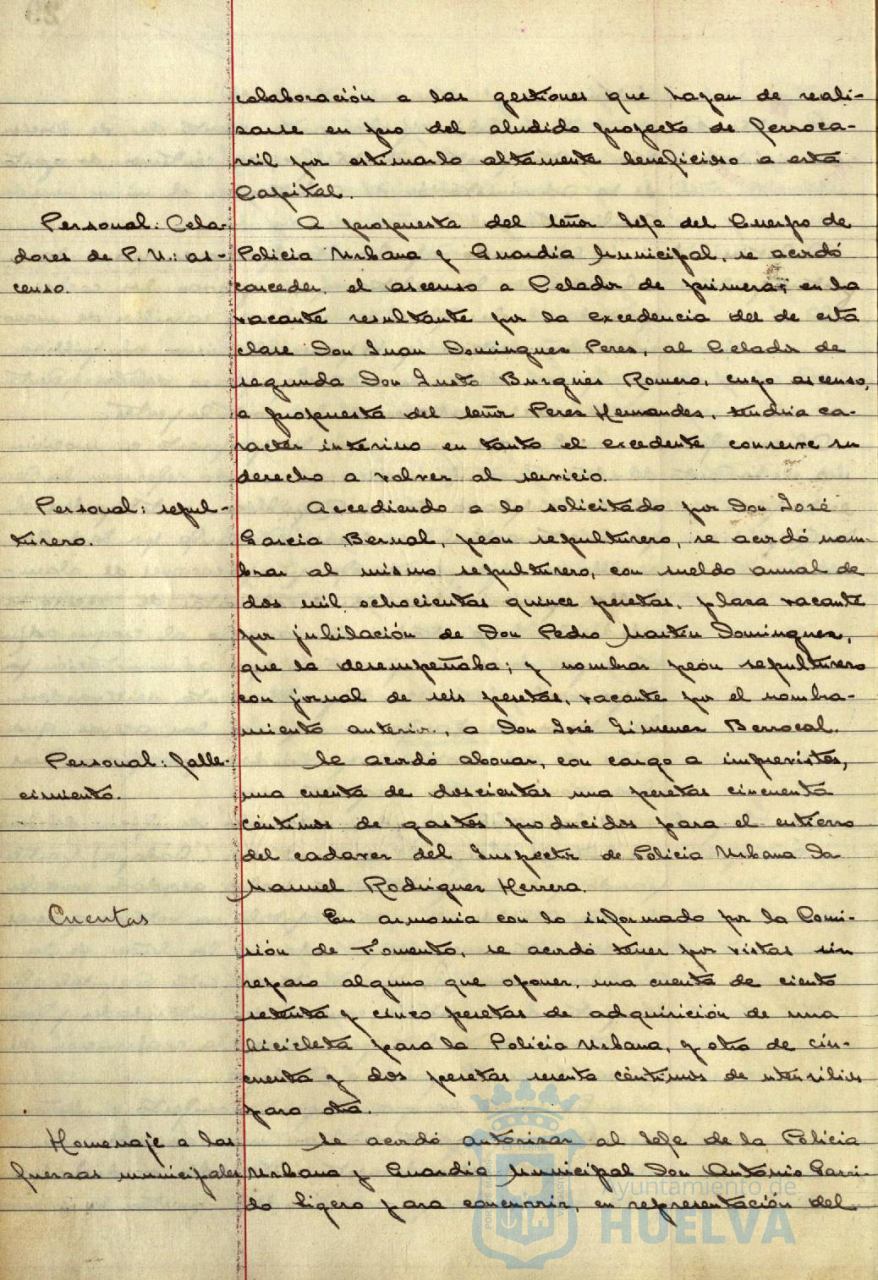 colaboración a las gestiones que hayan de reali-
zarse en pro del aludido proyecto de ferroca-
rril por estimarlo altamente beneficioso a esta
Capital.
Personal: Cela-
dores de P. U.: as-
censo.
A propuesta del señor Jefe del Cuerpo de
Policia Urbana y Guardia Municipal, se acordó
conceder el ascenso a Celador de primera, en la
vacante resultante por la excedencia del de esta
clase Don Juan Dominguez Perez, al Celador de
segunda Don Justo Burgués Romero, cuyo ascenso,
a propuesta del señor Perez Hernandez, tendria ca-
racter interino en tanto el excedente conserve su
derecho a volver al servicio.
Personal: sepul-
turero.
Accediendo a lo solicitado por Don José
Garcia Bernal, peon sepulturero, se acordó nom-
brar al mismo sepulturero, con sueldo anual de
dos mil ochocientas quince pesetas, plaza vacante
por jubilación de Don Pedro Martin Dominguez,
que la desempeñaba; y nombrar peón sepulturero
con jornal de seis pesetas, vacante por el nombra-
miento anterior, a Don José Gimenez Berrocal.
Personal: falle-
cimiento.
Se acordó abonar, con cargo a imprevistos,
una cuenta de doscientas una pesetas cincuenta
céntimos de gastos producidos para el entierro
del cadaver del Inspector de Policia Urbana Dn
Manuel Rodriguez Herrera.
Cuentas
En armonia con lo informado por la Comi-
sión de Fomento, se acordó tener por vistas sin
reparo alguno que oponer, una cuenta de ciento
setenta y cinco pesetas de adquisición de una
bicicleta para la Policia Urbana, y otra de cin-
cuenta y dos pesetas sesenta céntimos de utensilios
para otra.
Homenaje a las
fuerzas municipales
Se acordó autorizar al Jefe de la Policia
Urbana y Guardia Municipal Don Antonio Garri-
do Ligero para concurrir, en representación del
Ayuntamiento de
HUELVA